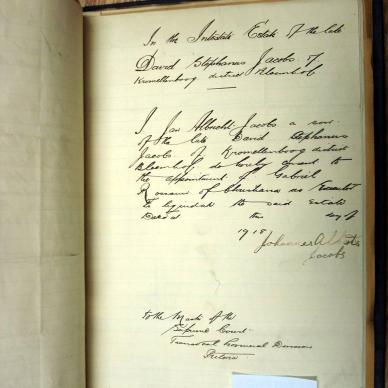 In the Intestate Estate of the late
David Stephanus Jacobs of
Kromellenboog district Bloemhof
I Jan Albrecht Jacobs a son
of the late David Stephanus
Jacobs of Kromellenboog district
Bloemhof do hereby consent to
the appointment of Gabriel
Roussouw of Christiana as Executor
To liquidate the said Estate
Dated the day of
1918
Johannes Alb
Jacobs
To the Master of the
Supreme Court
Transvaal Provincial Division
Pretoria